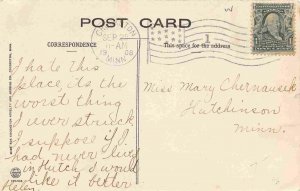 POST CARD
CORRESPONDENCE
This space for the address
SEP 2
AM
1908
MINN
1
I hate this
place, its the
worst thing
I ever struck
I suppose if I
had never lived
in Hutch I would
like it better
Helen
Miss Mary Chernausek
Hutchinson
Minn.